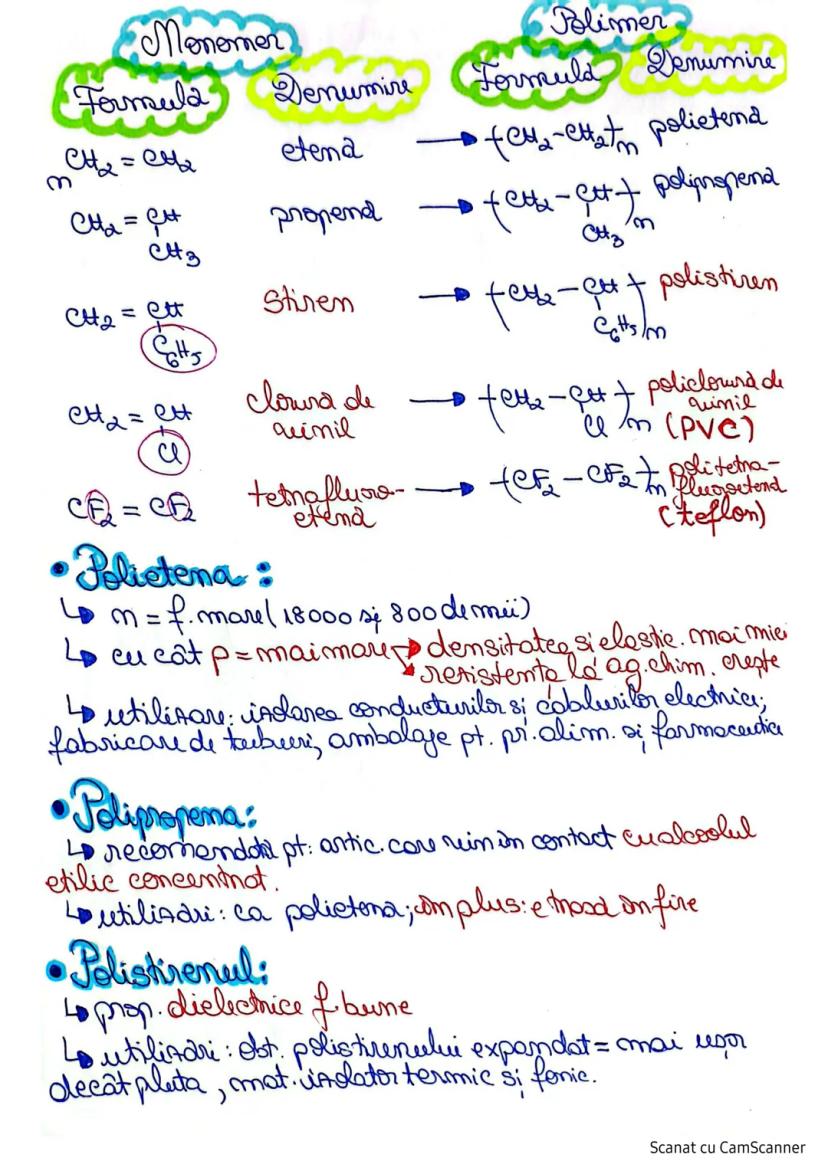 Monomer Polimer
Formula Denumire Formula Denumire
n CH2 = CH2 etenă → -(CH2-CH2)-n polietenă
CH2 = CH propenă → -(CH2 - CH)-n polipropenă
CH3 CH3
CH2 = CH Stiren → -(CH2 - CH)-n polistiren
C6H5 C6H5
CH2 = CH clorură de → -(CH2 - CH)-n policlorură de
vinil vinil
Cl Cl (PVC)
CF2 = CF2 tetrafluoro- → -(CF2 - CF2)-n politetra-
etenă fluoroetenă
(teflon)
• Polietena:
↳ n = f. mare (18000 și 800 de mii)
↳ cu cât p = mai mare → densitatea și elastic. mai mici
→ rezistența la ag. chim. crește
↳ utilizare: izolarea conductorilor și cablurilor electrice;
fabricare de tuburi, ambalaje pt. pr. alim. și farmaceutice
• Polipropena:
↳ recomandată pt: artic. care vin în contact cu alcoolul
etilic concentrat.
↳ utilizări: ca polietena; în plus: e trasă în fire
• Polistirenul:
↳ prop. dielectrice f bune
↳ utilizări: obț. polistirenului expandat = mai ușor
decât pluta, mat. izolator termic și fonic.
Scanat cu CamScanner